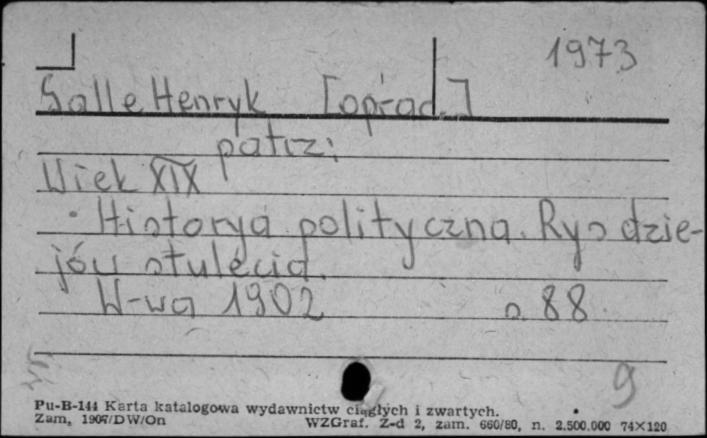 1973
Salle Henryk [oprac.]
patrz:
Wiek XIX
Historya polityczna. Rys dzie-
jów stulecia.
W-wa 1902 s. 88.
9
Pu-B-144 Karta katalogowa wydawnictw ciągłych i zwartych.
Zam. 1907/DW/On WZGraf. Z-d 2, zam. 660/80, n. 2.500.000 74×120